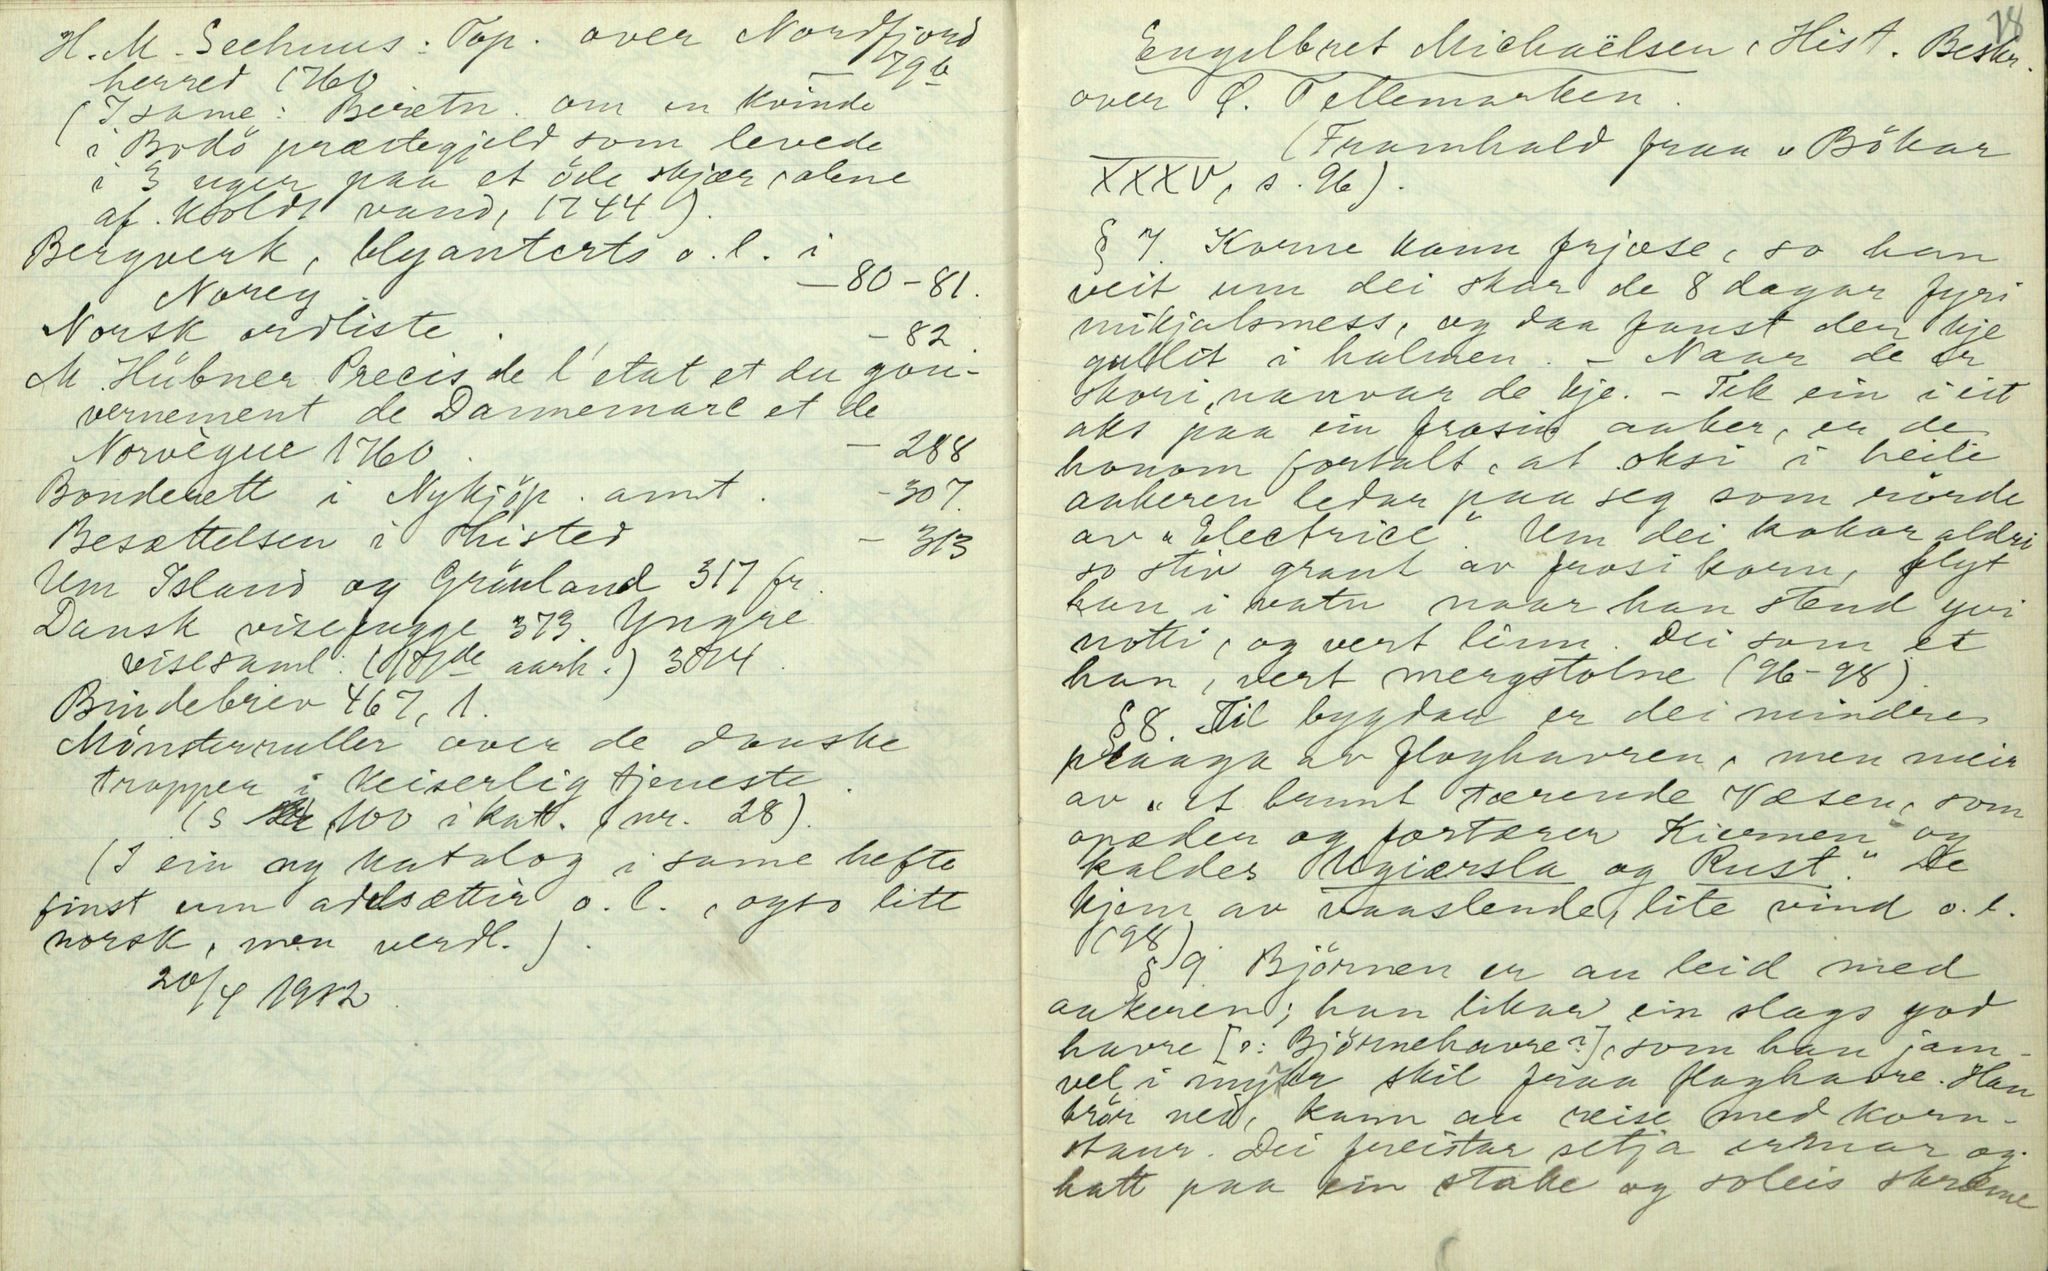 H. M. Seehuus: Top. over Nordfjord
herred 1760 — 79 b
(I same: Beretn. om en kvinde
i Bodö præstegjeld som levede
i 3 uger paa et öde skjær, alene
af koldt vand, 1744).
Bergverk, blyanterts o. l. i
Noreg. — 80-81.
Norsk ordliste. — 82.
M. Hübner Precis de l'etat et du gou-
vernement de Dannemarc et de
Norvègue 1760. — 288
Bonderett i Nykjöp. amt. - 307.
Besættelsen i Thisted — 313
Um Island og Grönland 317 fr.
Dansk visefugge 373. Yngre
visesaml. (17de aarh.) 374.
Bindebrev 467, 1.
Mönsterruller over de danske
tropper i keiserlig tjeneste.
(s 100 i kat. nr. 28).
(I ein ny katalog i same hefte
finst um adelsættir o. l., ogso litt
norsk, men verdl.).
20/4 1912.
78
Engelbret Michaëlsen, Hist. Beskr.
over Ö. Tellemarken.
(Framhald fraa "Bökar
XXXV, s. 96).
§ 7. Korne kann frjose, so han
veit um dei skar de 8 dagar fyri
mikjalsmess, og daa fanst den kje
gullit i halmen. - Naar de er
skori, nanvar de kje. - Tek ein i eit
aks paa ein frosin aaker, er de
honom fortalt, at oksi i heile
aakeren ledar paa seg som rörde
av "Electrice". Um dei kokar aldri
so stiv graut av frosi korn, flyt
han i vatn naar han stend yvi
notti, og vert linn. Dei som et
han, vert mergstolne (96-98).
§ 8. Til bygdan er dei mindre
plaaga av floghavren, men meir
av "et brunt tærende Væsen, som
opæder og fortærer Kiernen og
kaldes Ugiærsla og Rust." De
kjem av vaaslende, lite vind o. l.
(98)
§ 9 Björnen er au leid med
aakeren; han likar ein slags god
havre [ɔ: Björnehavre?], som han jam-
vel i myrkr skil fraa floghavre. Han
trör ned, kann au reise med korn-
staur. Dei freistar setja ermar og
hatt paa ein stake og soleis skræme